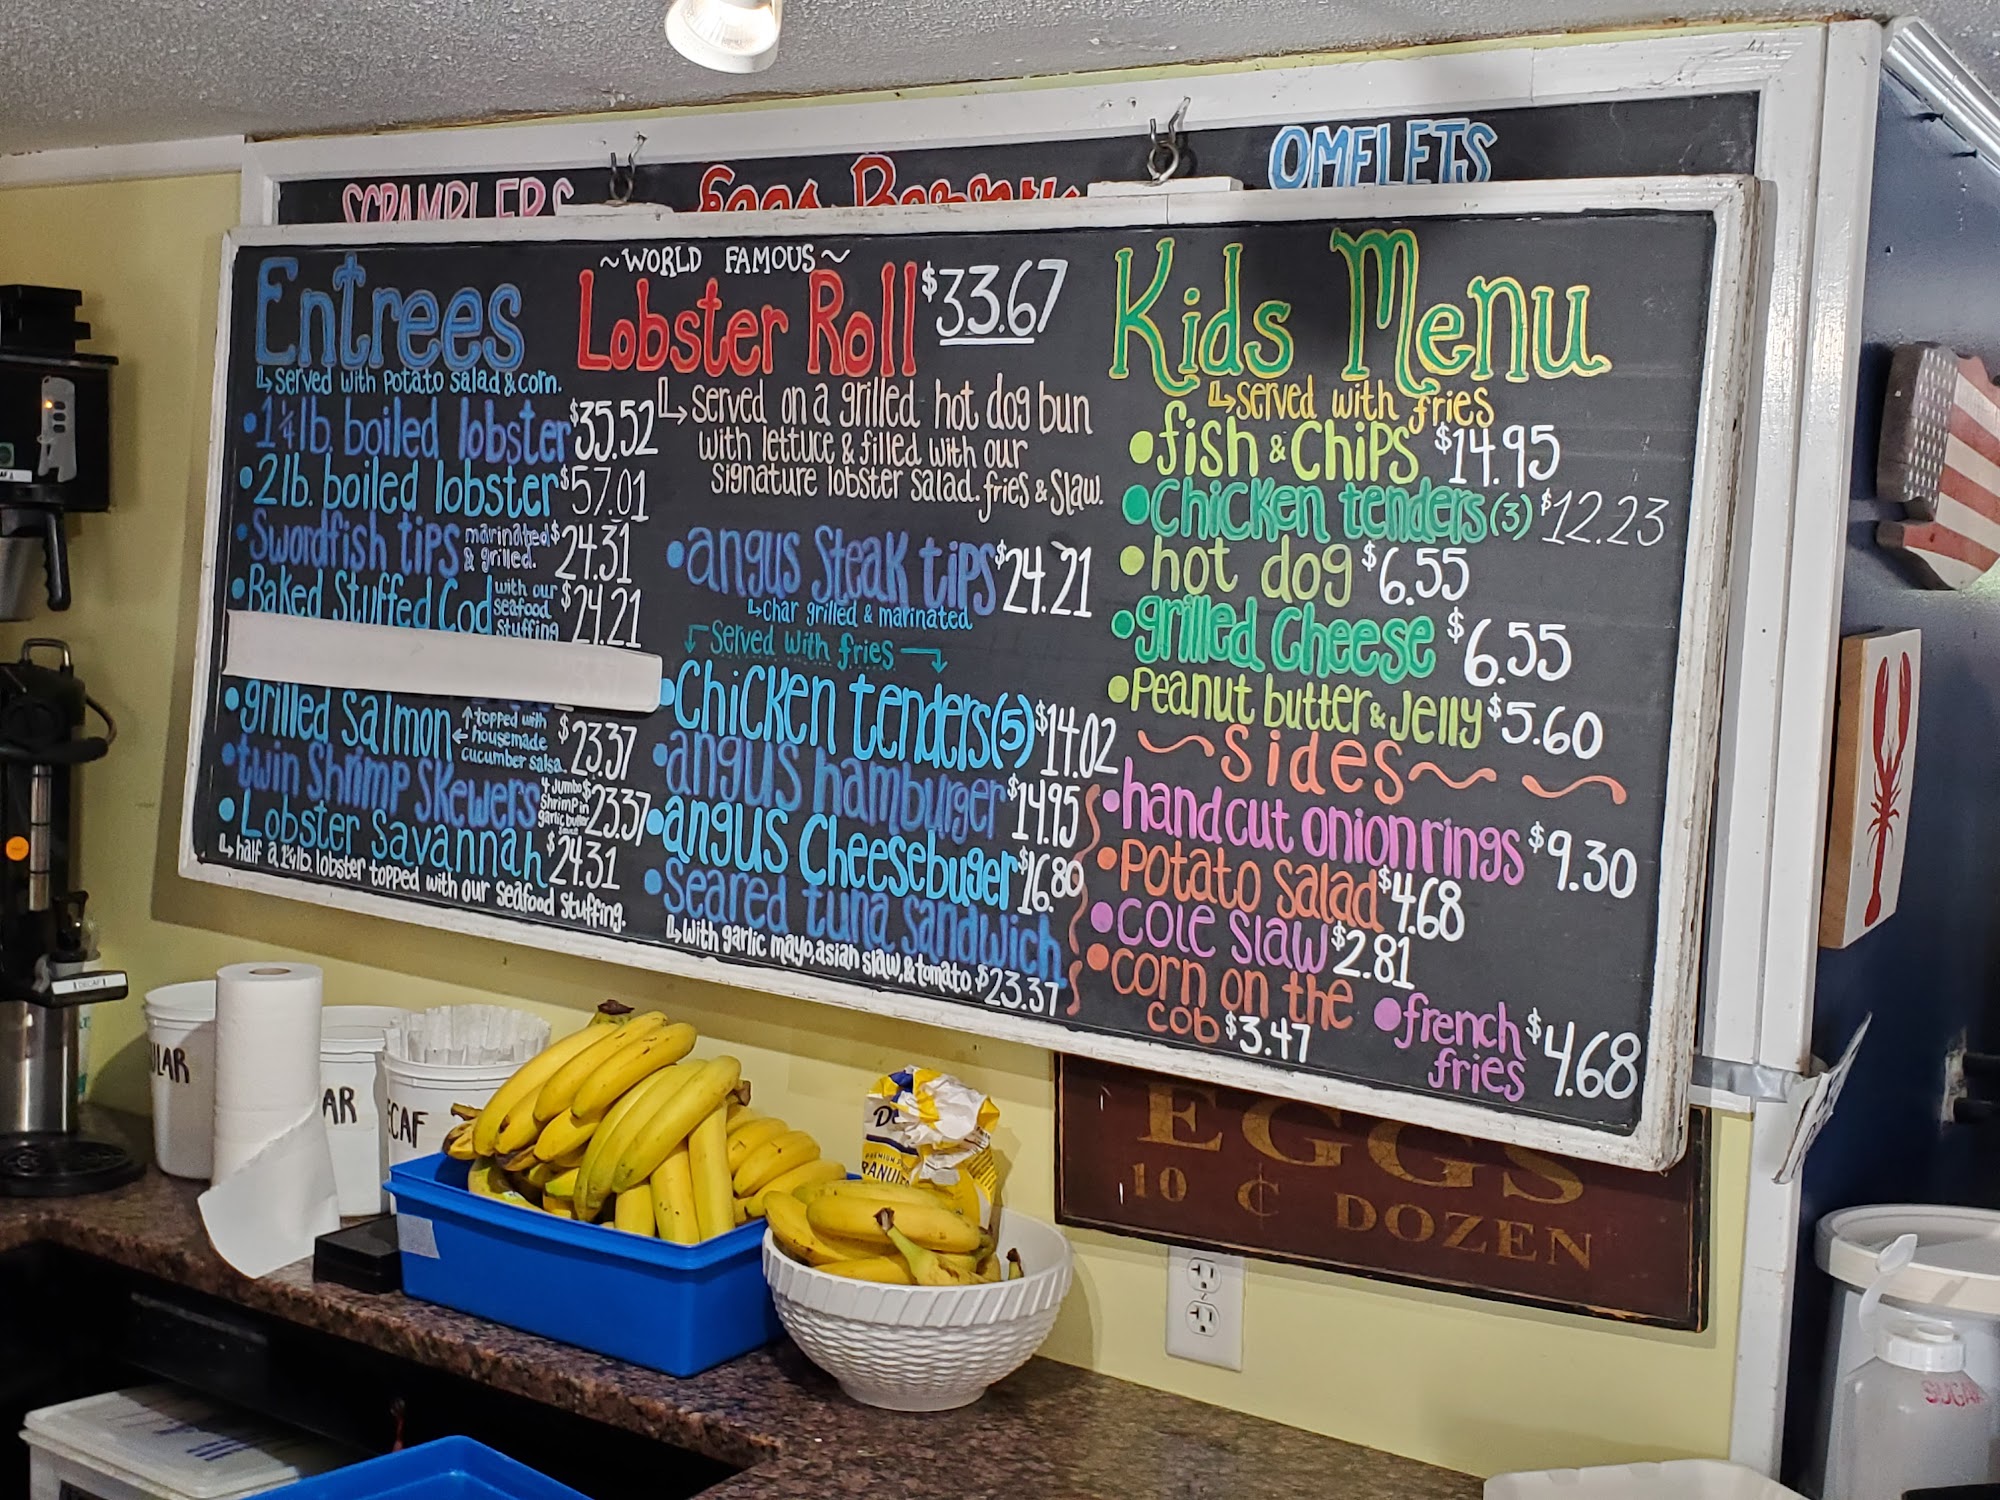 OMELETS
Entrees
served with potato salad & corn.
• 1 ¼ lb. boiled lobster $35.52
• 2 lb. boiled lobster $57.01
• Swordfish tips marinated & grilled. $24.31
• Baked Stuffed Cod with our seafood stuffing $24.21
• grilled salmon topped with housemade cucumber salsa. $23.37
• twin shrimp skewers 4 Jumbo shrimp in garlic butter $23.37
• Lobster Savannah $24.31
half a 1¼ lb. lobster topped with our seafood stuffing.
~WORLD FAMOUS~
Lobster Roll $33.67
served on a grilled hot dog bun
with lettuce & filled with our
signature lobster salad. fries & slaw.
• angus steak tips $24.21
char grilled & marinated
Served with fries
• Chicken tenders (5) $14.02
• angus hamburger $14.95
• angus Cheesebuger $16.80
• Seared tuna sandwich
with garlic mayo, asian slaw, & tomato $23.37
Kids Menu
served with fries
• fish & Chips $14.95
• Chicken tenders (3) $12.23
• hot dog $6.55
• grilled Cheese $6.55
• Peanut butter & Jelly $5.60
~Sides~
• hand cut onion rings $9.30
• Potato Salad $4.68
• Cole Slaw $2.81
• corn on the
cob $3.47
• french
fries $4.68
EGGS
10 ¢ DOZEN
DECAF
SUGAR